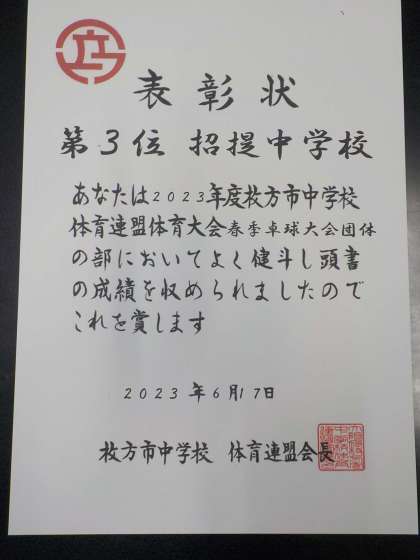 表彰状
第3位 招提中学校
あなたは2023年度枚方市中学校
体育連盟体育大会春季卓球大会団体
の部においてよく健斗し頭書
の成績を収められましたので
これを賞します
2023年6月17日
枚方市中学校 体育連盟会長